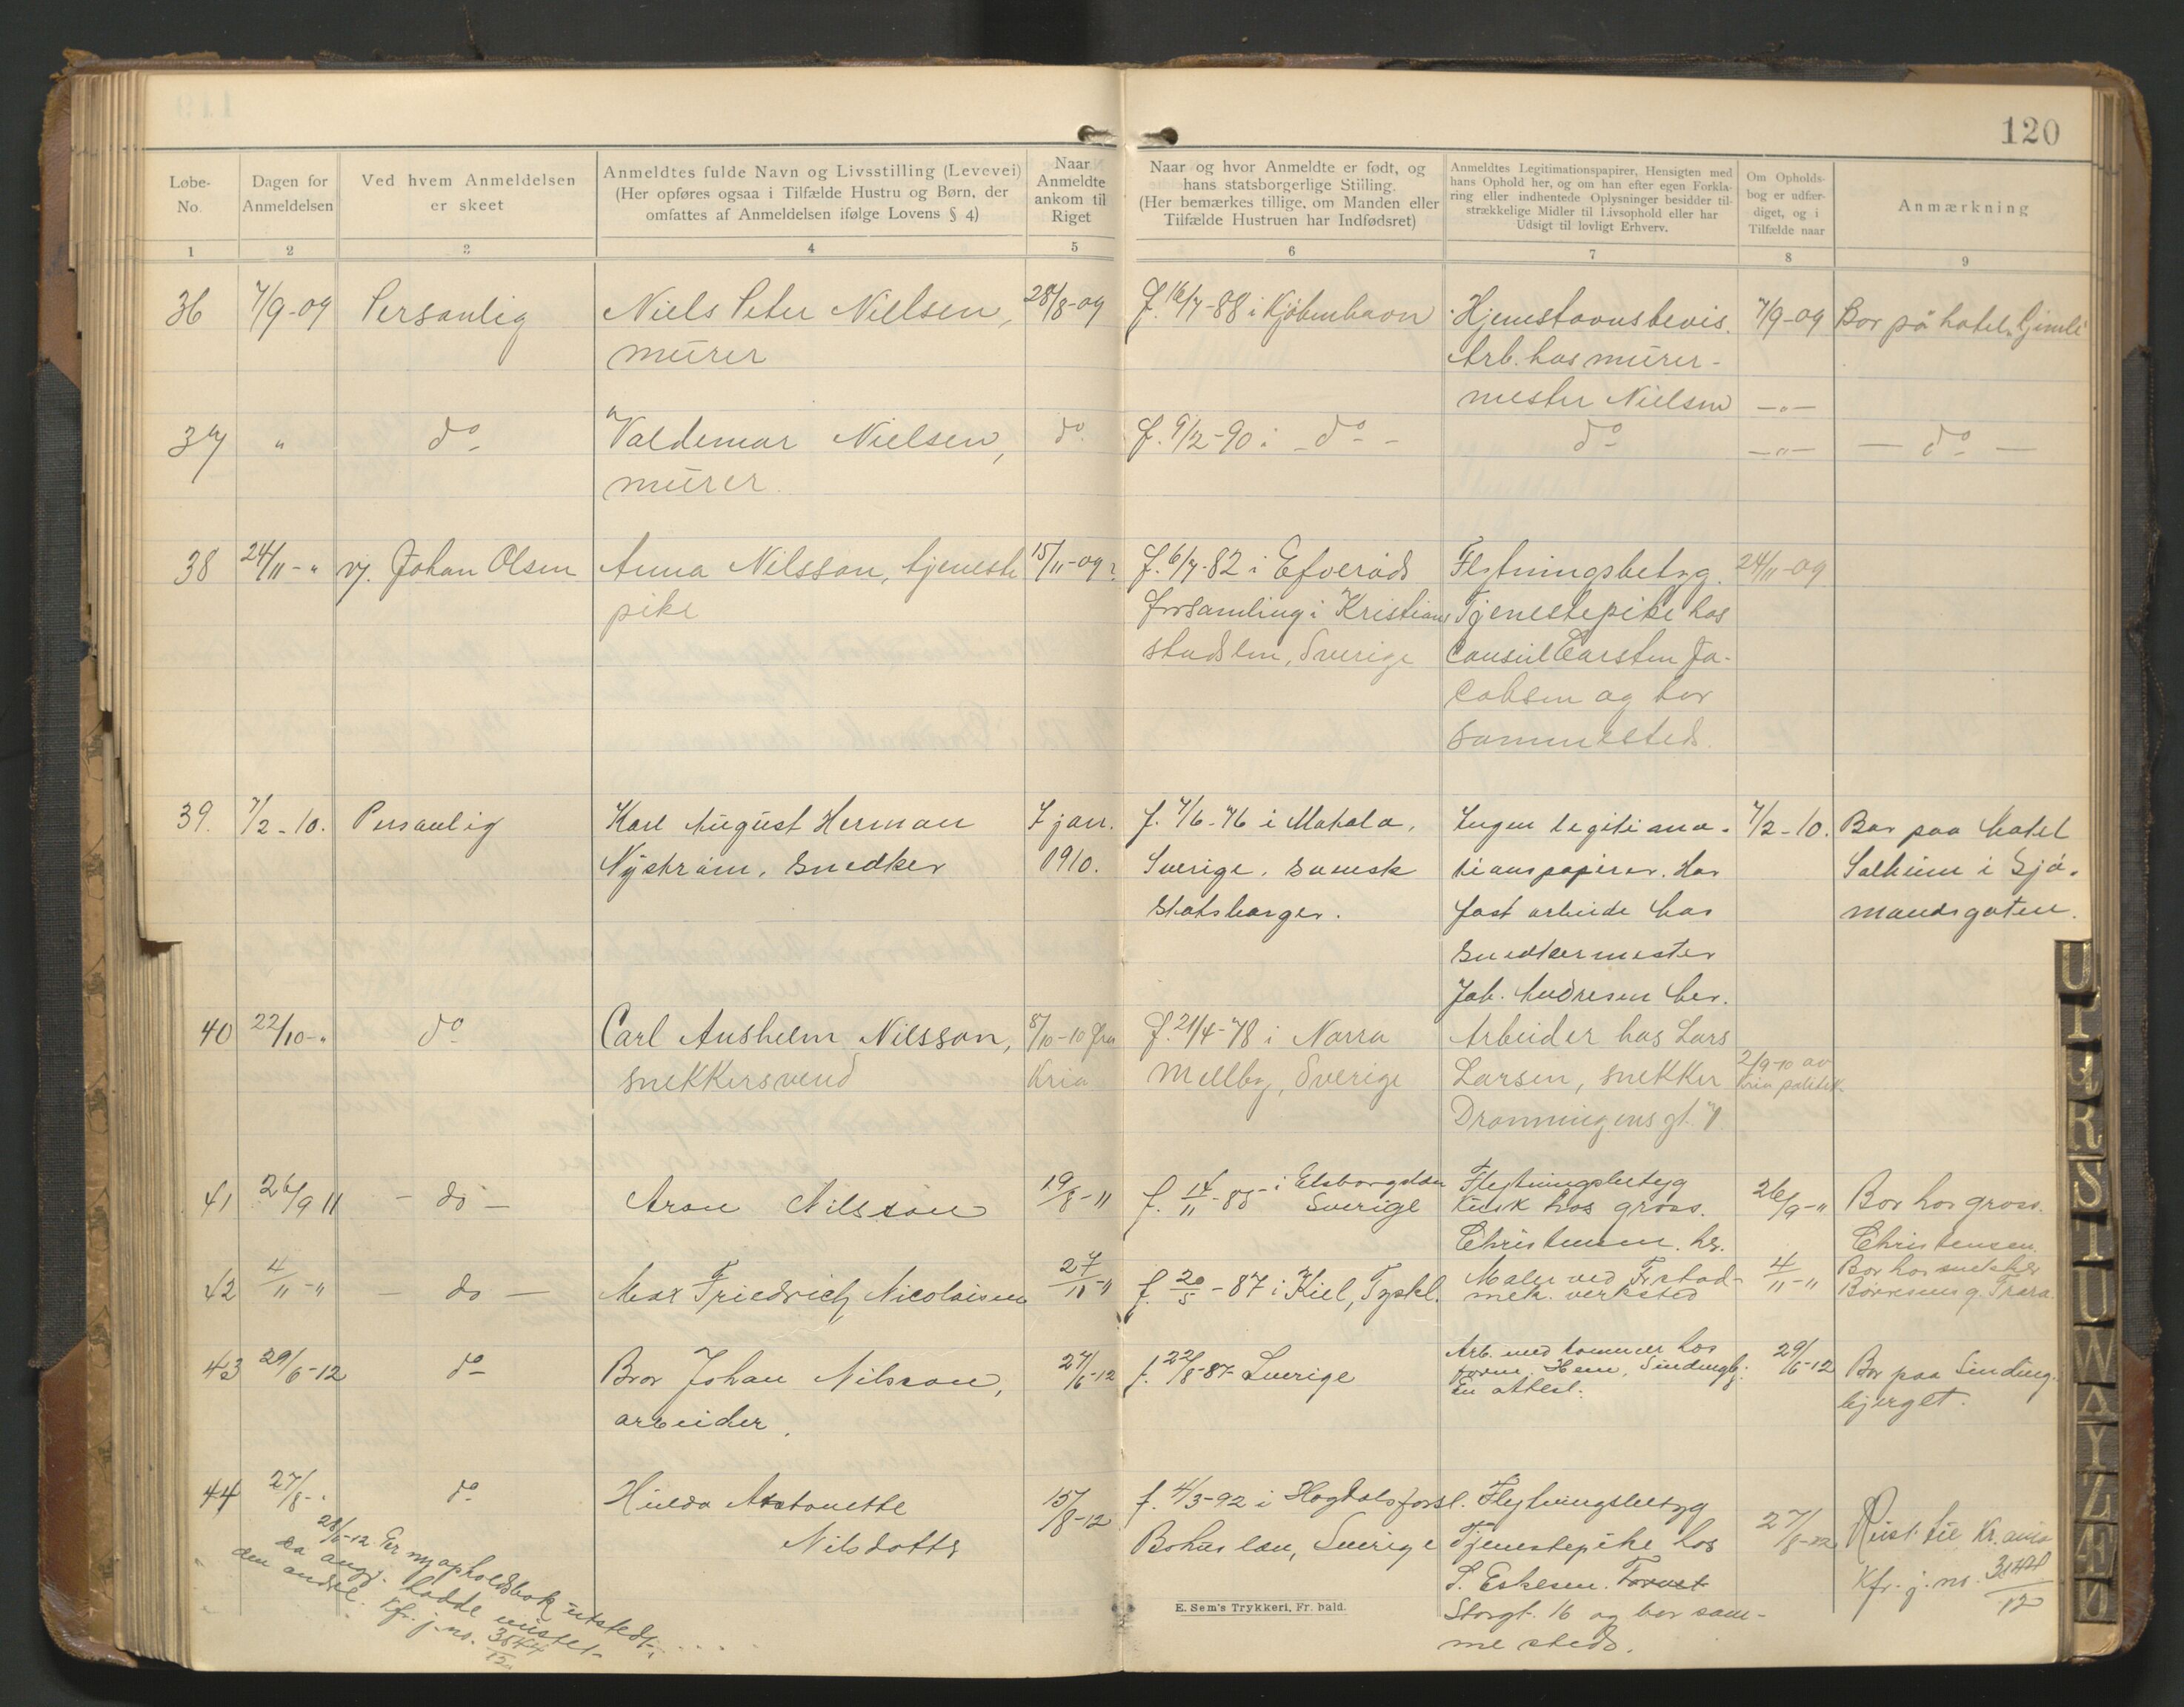 120
Løbe-No.
Dagen for Anmeldelsen
Ved hvem Anmeldelsen er skeet
Anmeldtes fulde Navn og Livsstilling (Levevei)
(Her opføres ogsaa i Tilfælde Hustru og Børn, der
omfattes af Anmeldelsen ifølge Lovens § 4)
Naar Anmeldte ankom til Riget
Naar og hvor Anmeldte er født, og
hans statsborgerlige Stiiling.
(Her bemærkes tillige, om Manden eller
Tilfælde Hustruen har Indfødsret)
Anmeldtes Legitimationspapirer, Hensigten med
hans Ophold her, og om han efter egen Forkla-
ring eller indhentede Oplysninger besidder til-
strækkelige Midler til Livsophold eller har
Udsigt til lovligt Erhverv.
Om Opholds-
bog er udfær-
diget, og i
Tilfælde naar
Anmærkning
1 2 3 4 5 6 7 8 9
36 7/9-09 Personlig Niels Peter Nielsen, 28/8-09 f. 16/7-88 i Kjøbenhavn Hjemstavnsbevis. 7/9-09 Bor på hotel Gimli
murer Arb. hos murer-
mester Nielsen -"-
37 " do Valdemar Nielsen, do f. 9/2-90 i - do - do -"- - do -
murer.
38 24/11-" vj. Johan Olsen Anna Nilsson, tjeneste 15/11-09 f. 6/7-82 i Efveröds Flytningsbetyg. 24/11-09
pike forsamling i Kristian Tjenestepike hos
stads len, Sverige Consul Carsten Ja-
cobsen og bor
sammesteds.
39. 7/2-10. Personlig Karl August Herman 7 jan. f. 7/6-76 i Motala, Ingen legitima- 7/2-10. Bor paa hotel
Nyström, snedker 1910. Sverige, svensk tionspapirer. Har Solheim i Sjø-
statsborger. fast arbeide hos mandsgaten.
snedkermester
Joh. Andresen her.
40 22/10-" do Carl Anshelm Nilsson, 8/10-10 fra f. 21/4-78 i Norra Arbeider hos Lars
snekkersvend Kria Mellby, Sverige Larsen, snekker 2/9-10 av Kria politik.
Dronningens gt. 7
41 26/9 11 - do - Aron Nilsson 19/8-11 f. 14/11-85 i Elsborgslän Sverige Flytningsbetyg 26/9-" Bor hos gross.
Kusk hos gross.
Christensen. her. Christensen.
42 4/11-" - do - Max Friedrich Nicolaisen 27/10-" f. 20/5-87 i Kiel, Tyskl. Maler ved Fr.stad- 4/11-" Bor hos snedker
mek. verksted Børresens g. Trara
43 29/6-12 do Bror Johan Nilsson, 27/6-12 f. 22/8-87 Sverige Arb. med tommer hos 29/6-12 Bor paa Sinding-
arbeider. En attest. bjerget.
44 27/8-" do Hilda Antonette 15/8-12 f. 4/3-92 i Hogdalsforsl. Flytningsbetyg 27/8-12 Reist til Kr.ania
Nilsdotter Bohus län, Sverige Tjenestepike hos Kfr. j.no. 3544/12
S. Eskesen. Torvet
Storgt. 16 og bor sam-
me steds.
28/11-12. Er ny opholdsbok utstedt,
da angj. hadde mistet
den anden. Kfr. j.no. 3544/12
E. Sem's Trykkeri, Fr. hald.
U
R
S
U
W
Y
Z
Æ
Ø